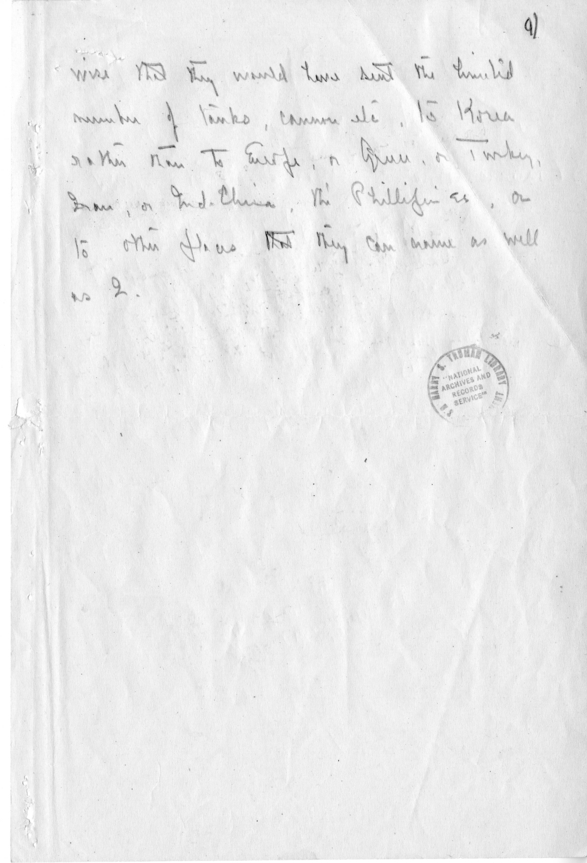 9)
wise that they would have sent the limited
number of tanks, cannon etc, to Korea
rather than to Europe, or Greece, or Turkey,
Iran, or Ind. China, the Phillipines, or
to other places that they can name as well
as I.
HARRY S. TRUMAN LIBRARY
NATIONAL
ARCHIVES AND
RECORDS
SERVICE